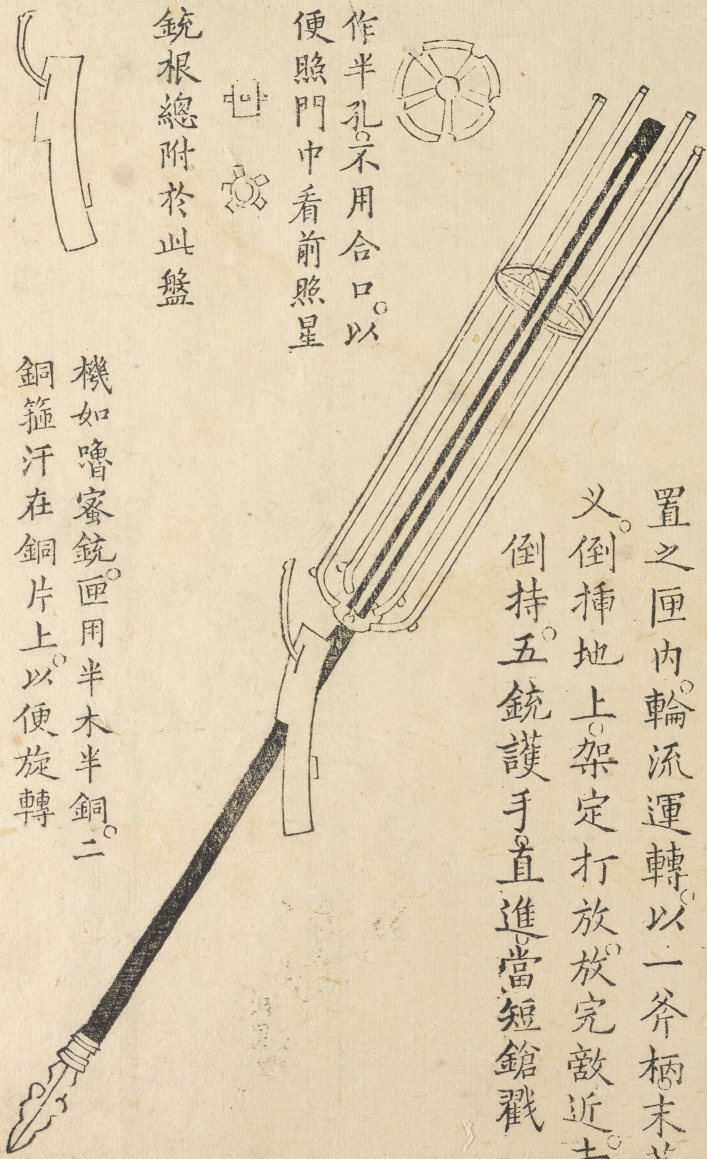 置之匣内。輪流運轉。以一斧柄。末
义。倒揷地上。架定打放。放完敵近。
倒持。五銃護手。直進。當短鎗戳
作半孔。不用合口。以
便照門中看前照星
銃根總附於此盤
機如嚕蜜銃。匣用半木半銅。二
銅箍汗在銅片上。以便旋轉